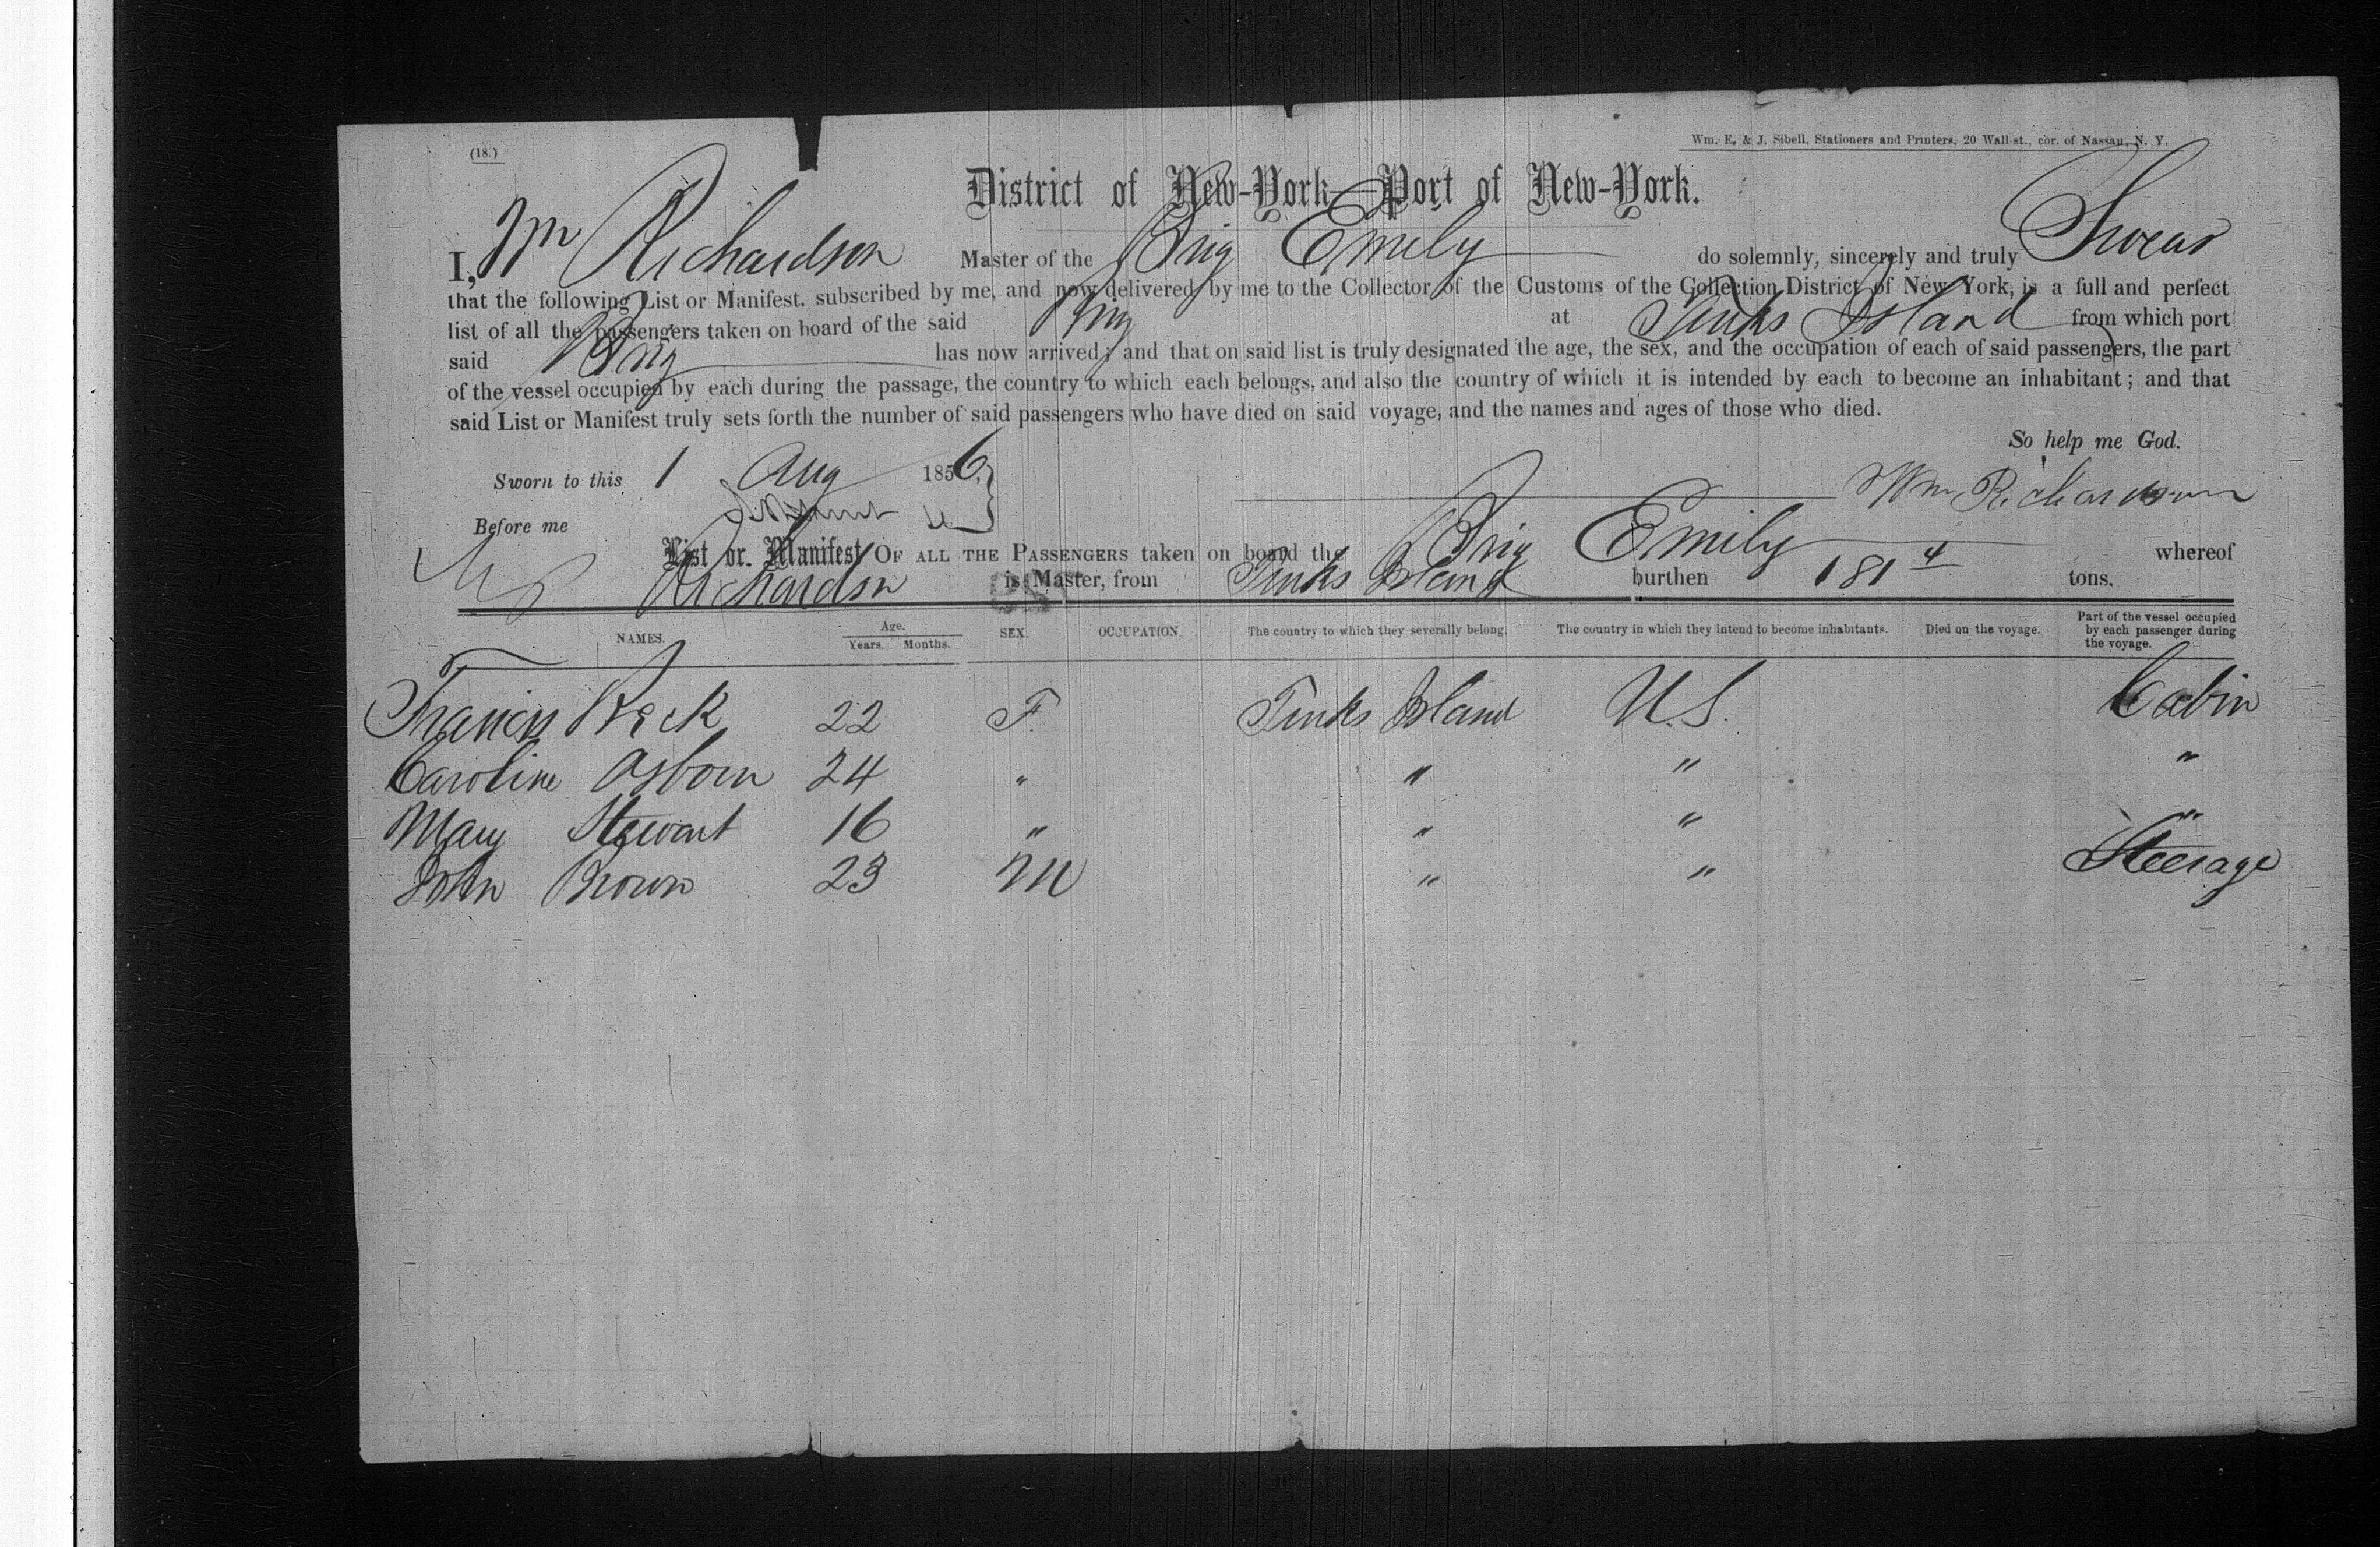 (18.)
Wm. E. & J. Sibell, Stationers and Printers, 20 Wall-st., cor. of Nassau, N. Y.
District of New-York—Port of New-York.
I, Wm Richardson Master of the Brig Emily do solemnly, sincerely and truly Swear
that the following List or Manifest, subscribed by me, and now delivered by me to the Collector of the Customs of the Collection District of New York, is a full and perfect
list of all the passengers taken on board of the said Brig at Turks Island from which port
said Brig has now arrived; and that on said list is truly designated the age, the sex, and the occupation of each of said passengers, the part
of the vessel occupied by each during the passage, the country to which each belongs, and also the country of which it is intended by each to become an inhabitant; and that
said List or Manifest truly sets forth the number of said passengers who have died on said voyage, and the names and ages of those who died.
So help me God.
Sworn to this 1 Aug 1856,
Wm Richardson
Before me
List or Manifest OF ALL THE PASSENGERS taken on board the Brig Emily whereof
Richardson is Master, from Turks Island burthen 181 4 tons.
NAMES. Age. Years. Months. SEX. OCCUPATION. The country to which they severally belong. The country in which they intend to become inhabitants. Died on the voyage. Part of the vessel occupied by each passenger during the voyage.
Frances Peck 22 F. Turks Island U.S. Cabin
Caroline Osborn 24 " " " "
Mary Stewart 16 " " " "
John Brown 23 M " " Steerage